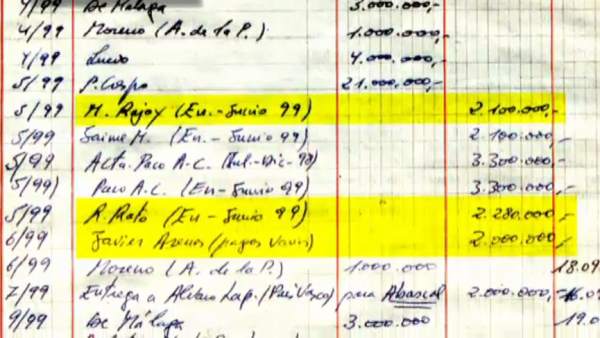 4/99 De Málaga 3.000.000,-
4/99 Moreno (A. de la P.) 1.000.000,-
4/99 4.000.000,-
5/99 P. Crespo 21.000.000,-
5/99 M. Rajoy (En.-Junio 99) 2.100.000,-
5/99 Jaime M. (En.-Junio 99) 2.100.000,-
5/99 Acta. Paco A-C. (Jul-Dic-98) 3.300.000,-
(5/99) Paco A.C. (En-Junio 99) 3.300.000,-
5/99 R. Rato (En-Junio 99) 2.280.000,-
6/99 Javier Arenas (pagos varios) 2.000.000,-
6/99 Moreno (A. de la P.) 1.000.000 18.09
7/99 Entrega a Alvaro Lap. (País Vasco) para Abascal 2.000.000,- 16.09
9/99 De Málaga 3.000.000 19.0